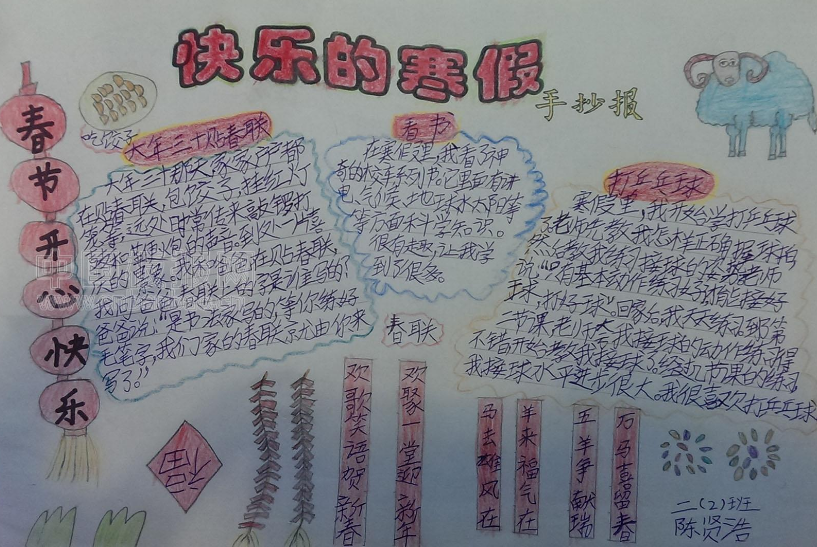 快乐的寒假
手抄报
春节开心快乐
吃饺子
大年三十贴春联
大年三十那天家家户户都
在贴春联,包饺子,挂红灯
笼等。远处时常传来敲锣打
鼓和鞭炮的声音,到处一片喜
庆的景象。我和爸爸在贴春联,
我问爸爸春联上的字是谁写的?
爸爸说:“是书法家写的,等你练好
毛笔字,我们家的春联就由你来
写了。”
看书
在寒假里,我看了神
奇的校车系列书,它里面有讲
电、气候、地球、水、太阳等
等方面科学知识。
很有趣,让我学
到了很多。
打乒乓球
寒假里,我开始学打乒乓球
老师先教我怎样正确握球拍
然后教我练习接球的姿势,老师
说:“只有基本动作练好了才能接好
球,打好球”。回家后我天天练习,到第
二节课老师
不错开始教我接球了。经过几节课的练习
我接球水平进步很大。我很喜欢打乒乓球
春联
福
欢歌笑语贺新春
欢聚一堂迎新年
马去雄风在
羊来福气在
五羊争献瑞
万马喜留春
二(2)班
陈贤浩